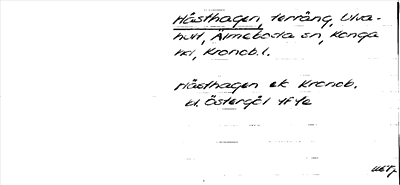 Hästhagen, terräng, Ulva-
hult, Älmeboda sn, Konga
hd, Kronob. l.
Hästhagen ek Kronob.
kl. Östergöl tf fe